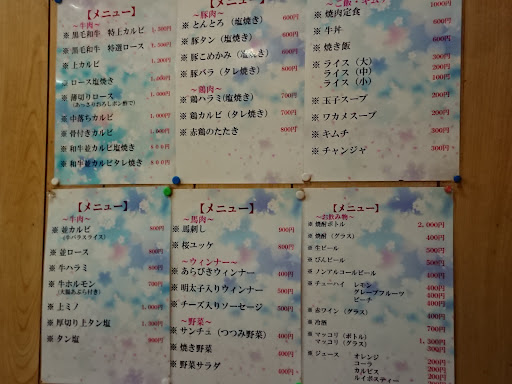 【メニュー】
～牛肉～
※ 黒毛和牛 特上カルビ
※ 黒毛和牛 特選ロース
※ 上カルビ
※ ロース塩焼き
※ 薄切りロース
(あっさりおろしポン酢で)
※ 中落ちカルビ
※ 骨付きカルビ
※ 和牛並カルビ塩焼き 900円
※ 和牛並カルビタレ焼き 900円
【メニュー】
～豚肉～
※ とんとろ（塩焼き） 600円
※ 豚タン（塩焼き） 600円
※ 豚こめかみ（塩焼き） 600円
※ 豚バラ（タレ焼き） 600円
～鶏肉～
※ 鶏ハラミ(塩焼き) 700円
※ 鶏カルビ（タレ焼き） 700円
※ 赤鶏のたたき 800円
～ご飯・キムチ～
※ 焼肉定食 1000円
※ 牛丼
※ 焼き飯 600円
※ ライス（大）
※ ライス（中）
※ ライス（小）
※ 玉子スープ
※ ワカメスープ
※ キムチ 300円
※ チャンジャ
【メニュー】
～牛肉～
※ 並カルビ 800円
(牛バラスライス)
※ 並ロース 800円
※ 牛ハラミ
※ 牛ホルモン 700円
(大腸あぶら付き)
※ 上ミノ
※ 厚切り上タン塩
※ タン塩 900円
【メニュー】
～馬肉～
※ 馬刺し 900円
※ 桜ユッケ 900円
～ウィンナー～
※ あらびきウィンナー 400円
※ 明太子入りウィンナー 500円
※ チーズ入りソーセージ 500円
～野菜～
※ サンチュ（つつみ野菜） 400円
※ 焼き野菜 400円
※ 野菜サラダ 400円
【メニュー】
～お飲み物～
※ 焼酎ボトル 2,000円
※ 焼酎（グラス） 400円
※ 生ビール 500円
※ びんビール 500円
※ ノンアルコールビール 400円
※ チューハイ レモン 400円
グレープフルーツ 400円
ピーチ 400円
※ 赤ワイン（グラス） 400円
※ 冷酒 700円
※ マッコリ（ボトル）
※ マッコリ（グラス） 300円
※ ジュース オレンジ 200円
コーラ 200円
カルピス 200円
ルイボスティー 200円